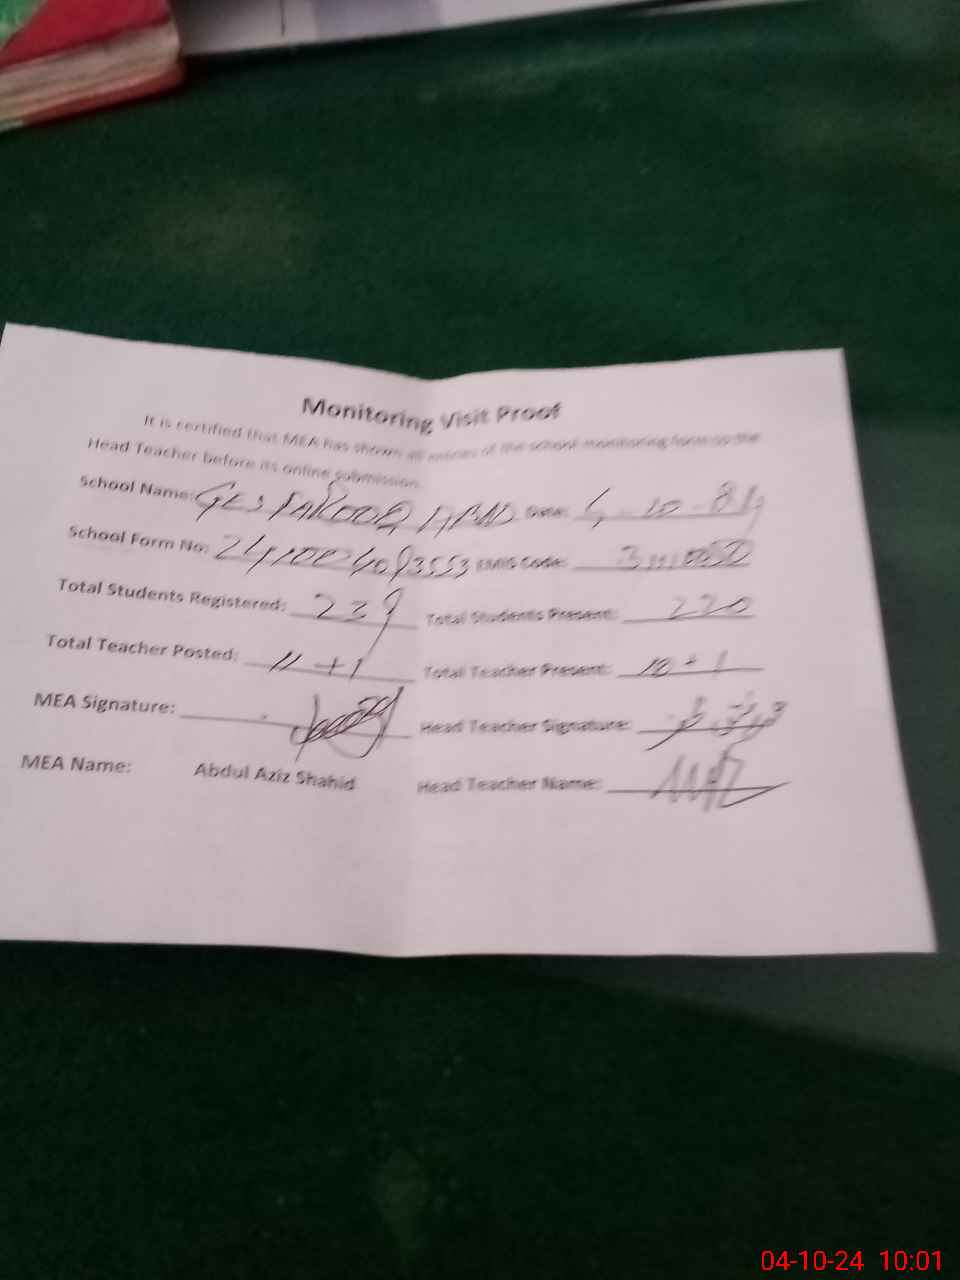 Monitoring Visit Proof
It is certified that MEA has shown all entries of the school monitoring form to the
Head Teacher before its online submission.
School Name: GES Date: 4-10-
School Form No: EMIS Code:
Total Students Registered: 239 Total Students Present: 220
Total Teacher Posted: 11 + 1 Total Teacher Present: 10 + 1
MEA Signature: Head Teacher Signature:
MEA Name: Abdul Aziz Shahid Head Teacher Name:
04-10-24 10:01